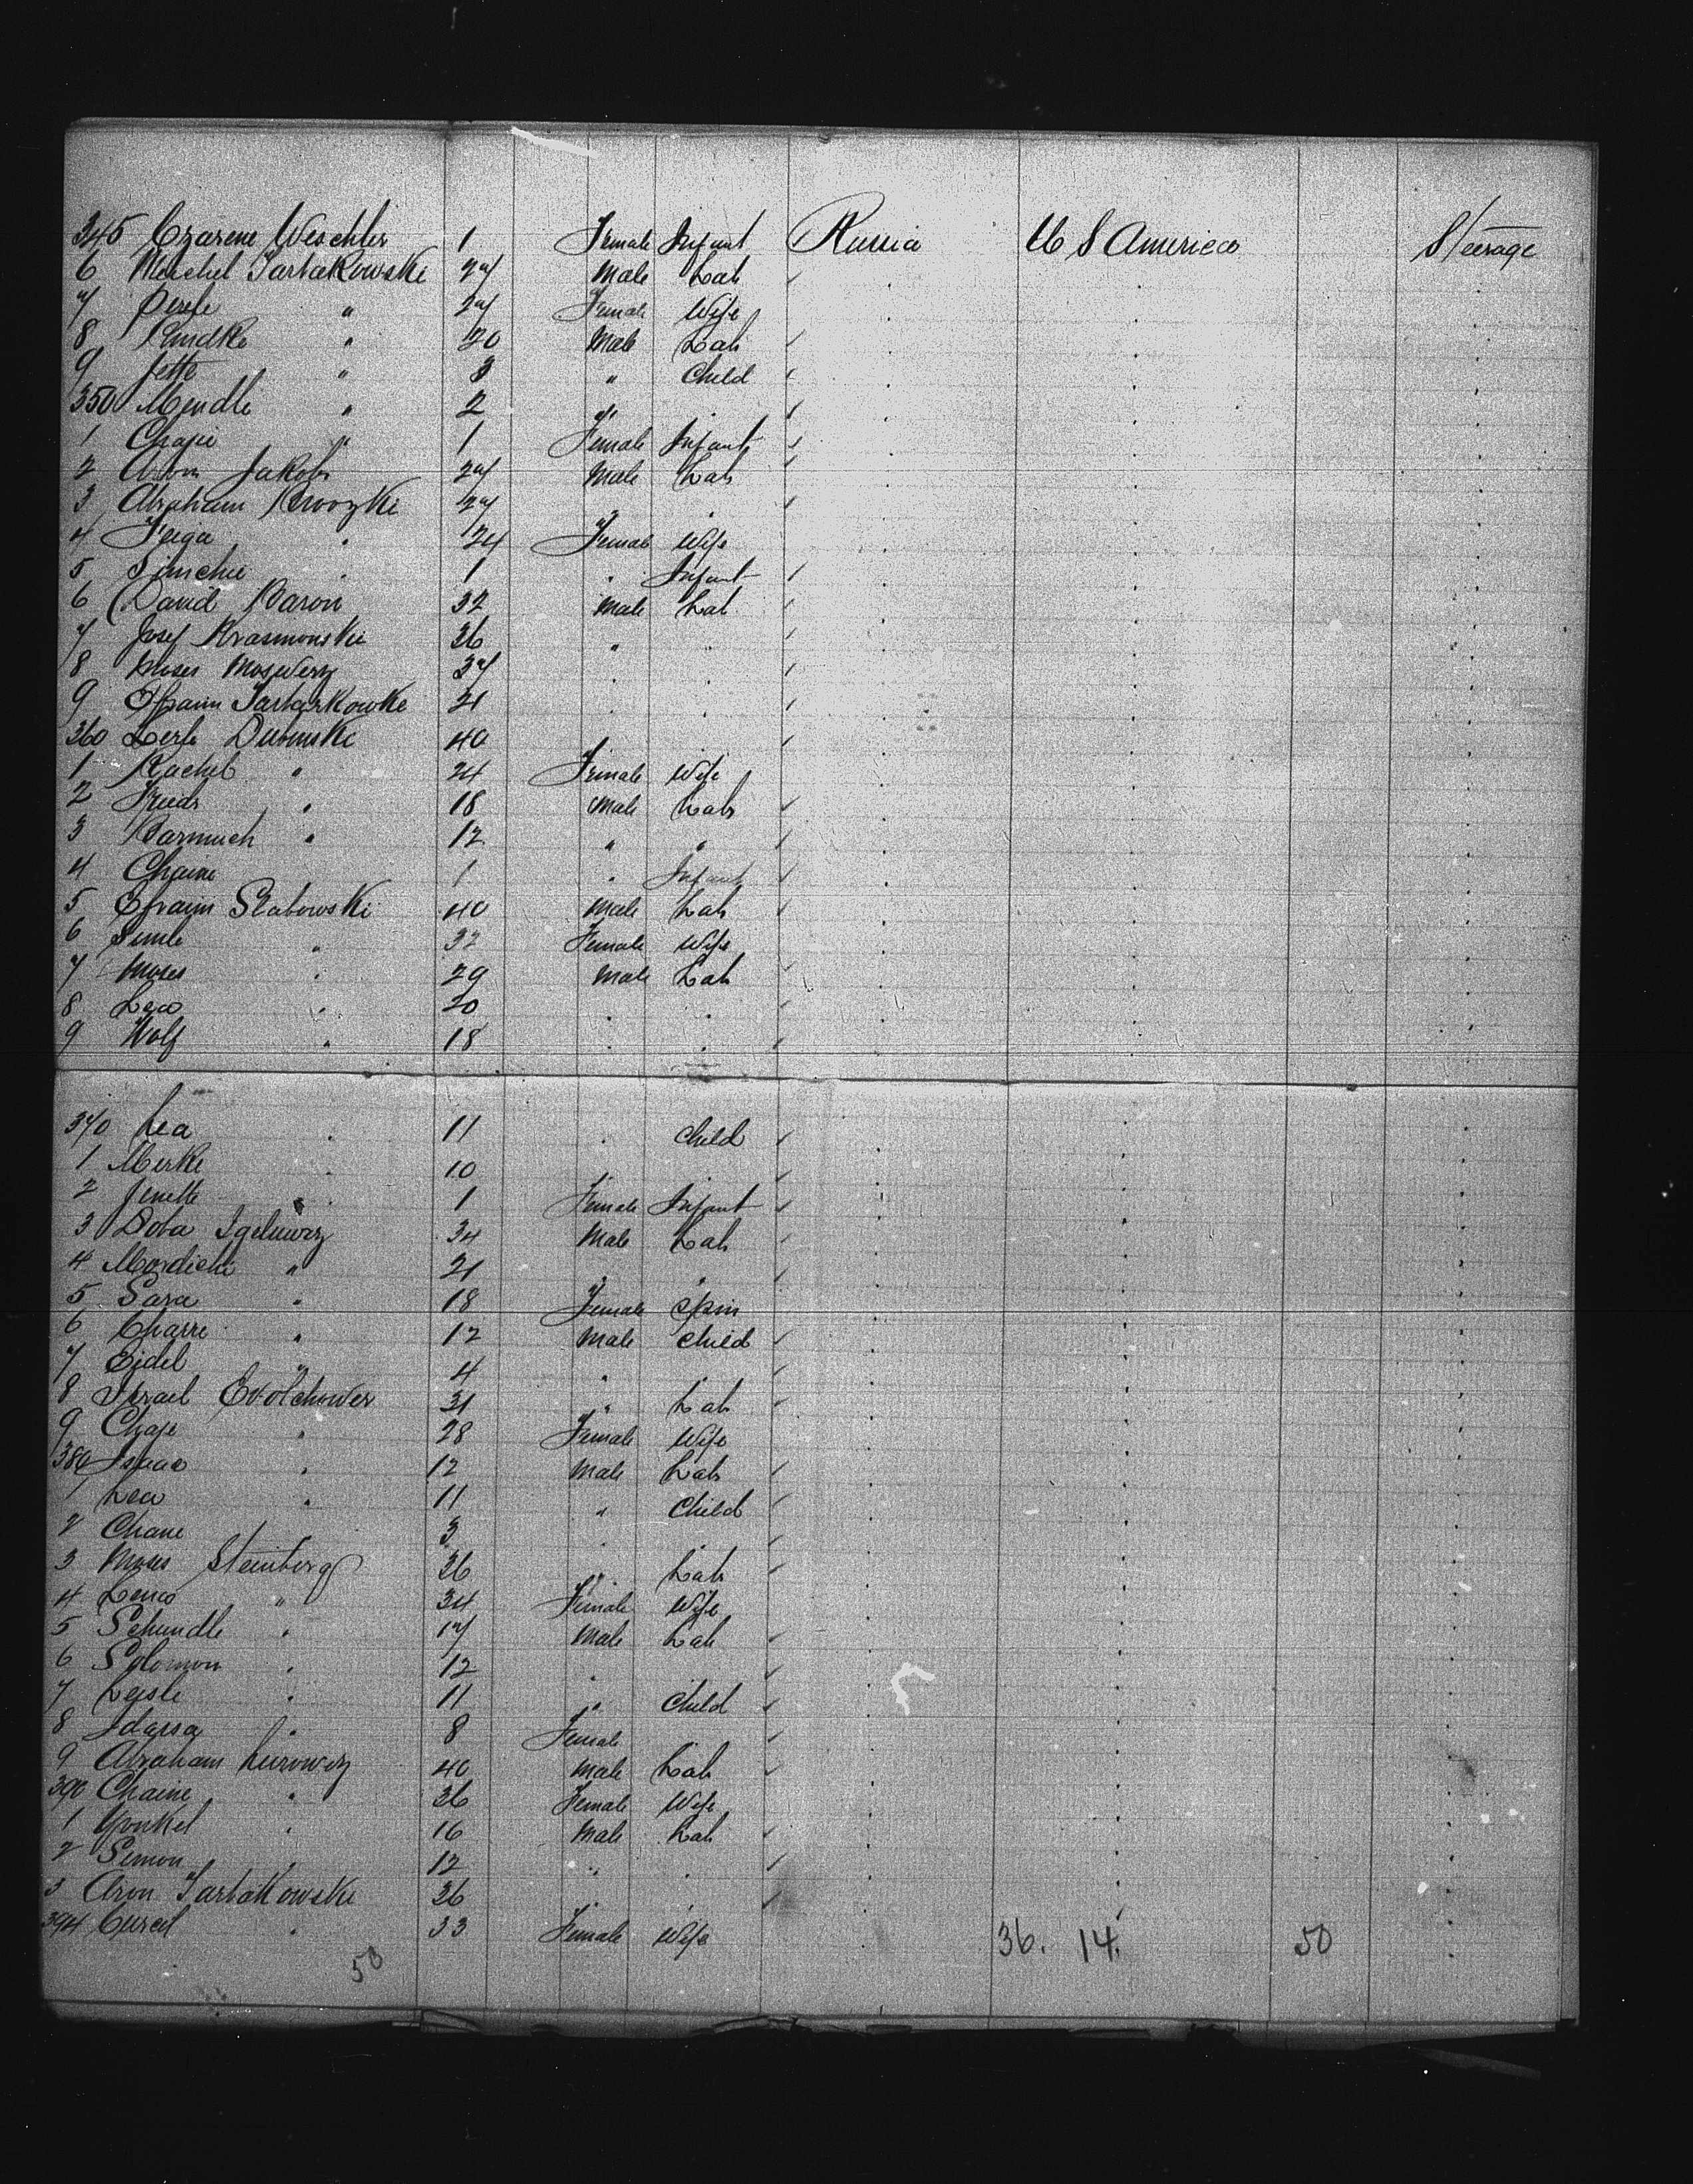 345 Czarene Weschler 1 Female Infant Russia U S America Steerage
6 Meichel Tartakowski 27 Male Lab
7 Pesse " 27 Female Wife
8 " 20 Male Lab
9 Jette " 3 " Child
350 Mendle " 2 "
1 Chaje " 1 Female Infant
2 Aron Jakobs 27 Male Lab
3 Abraham 27
4 Feiga " 24 Female Wife
5 Simche 1 " Infant
6 David Baron 32 Male Lab
7 Josef Krasmonski 36 "
8 Moses 37
9 Efraim Tartarkowke 21
360 Berle Dubinski 40
1 Rachel " 24 Female Wife
2 " 18 Male Lab
3 Barmuch " 12 " "
4 Chaine 1 " Infant
5 Efraim Slabowski 40 Male Lab
6 Simle " 32 Female Wife
7 Moses " 29 Male Lab
8 Leo " 20 " "
9 Wolf " 18 " "
370 Lea " 11 " Child
1 Merke 10
2 Jenette " 1 Female Infant
3 Doba Igeluwiz 34 Male Lab
4 Mordiche " 21 " "
5 Sara " 18 Female Spin
6 Charre " 12 Male Child
7 Eidel " 4 " "
8 Israel 31 " Lab
9 Chaje " 28 Female Wife
380 Isaac " 12 Male Lab
1 Lea " 11 " Child
2 Chane 3 " "
3 Moses Steinberg 36 " Lab
4 " 34 Female Wife
5 Schundle " 17 Male Lab
6 Solomon " 12 "
7 Leisle " 11 " Child
8 Idassa " 8 Female
9 Abraham Kurowiz 40 Male Lab
390 Chaine " 36 Female Wife
1 Yonkel " 16 Male Lab
2 Simon " 12 " "
3 Aron Tartakowski 36 " "
394 " 33 Female Wife 36. 14. 50
50